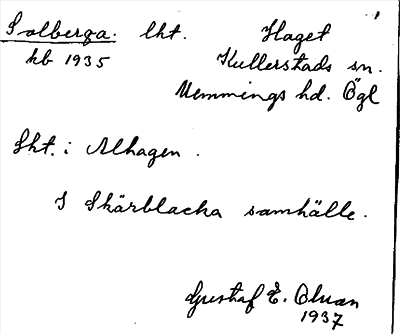 Solberga. lht. Haget
kb 1935 Kullerstads sn.
Memmings hd. Ögl
Lht. i Alhagen.
I Skärblacka samhälle.
Gustaf E. Olsson
1937